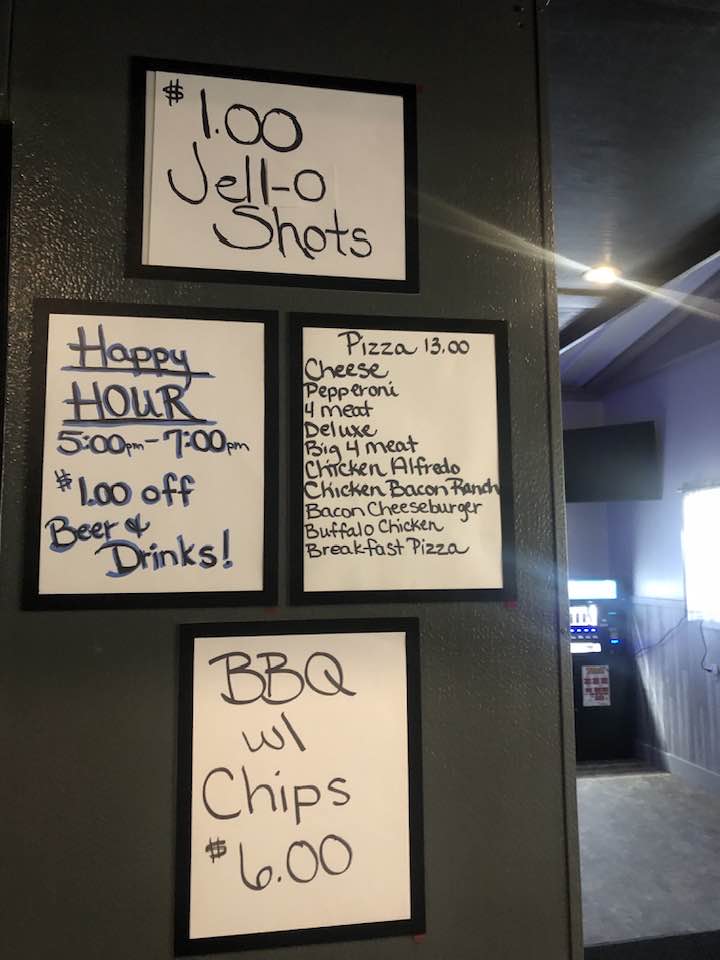 $1.00
Jell-O
Shots
Happy
HOUR
5:00pm-7:00pm
$1.00 off
Beer &
Drinks!
Pizza 13.00
Cheese
Pepperoni
4 meat
Deluxe
Big 4 meat
Chicken Alfredo
Chicken Bacon Ranch
Bacon Cheeseburger
Buffalo Chicken
Breakfast Pizza
BBQ
w/
Chips
$6.00